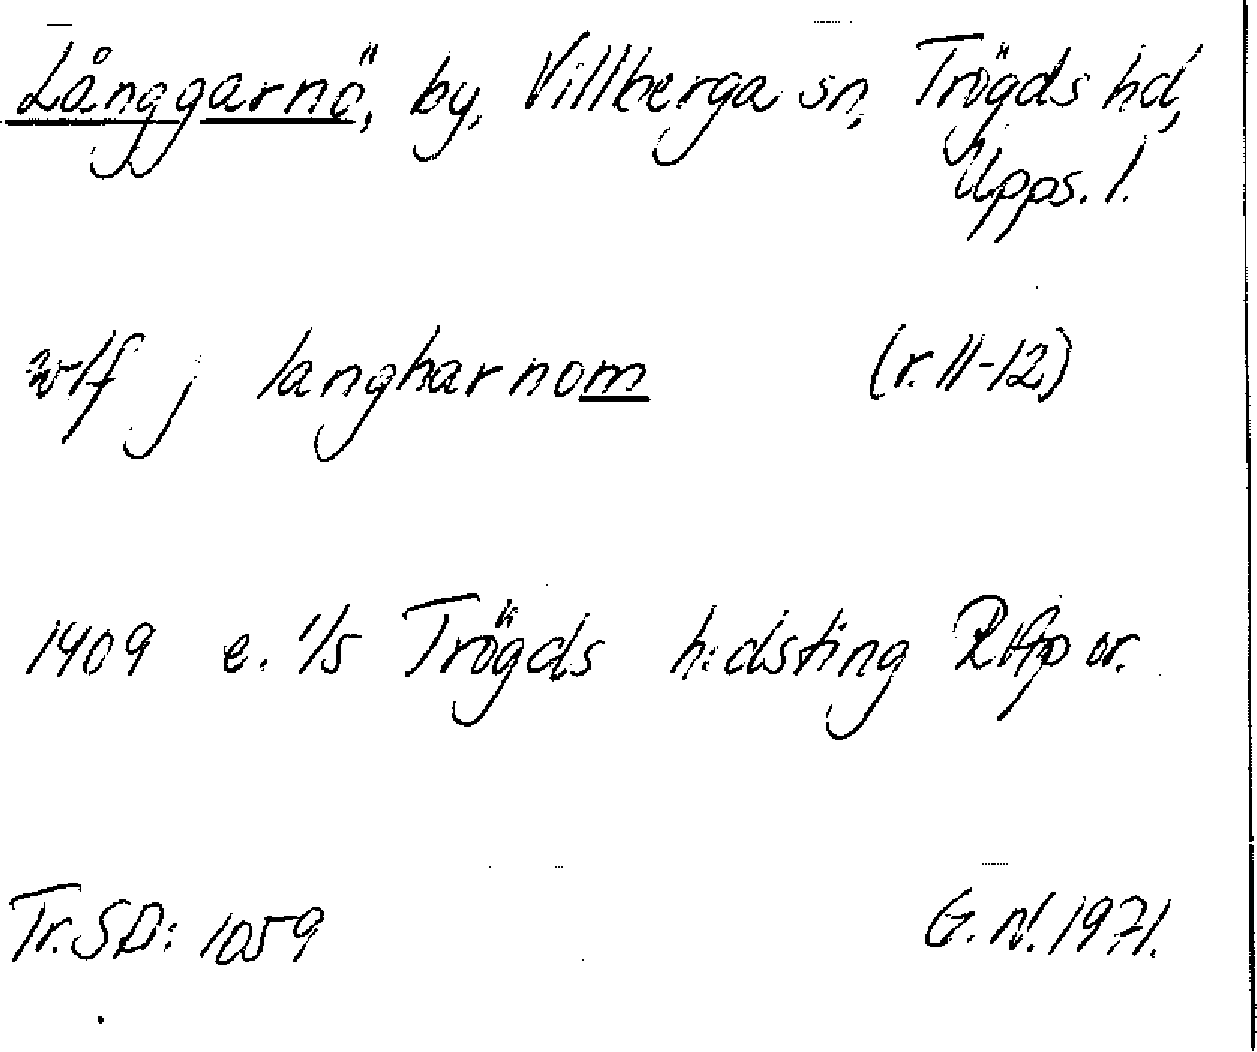 Långgarnö, by, Villberga sn, Trögds hd,
Upps. l.
wlf j langharnom (r. 11-12)
1409 e. 1/5 Trögds h:dsting RApp or.
Tr. SD: 1059 G. N. 1971.